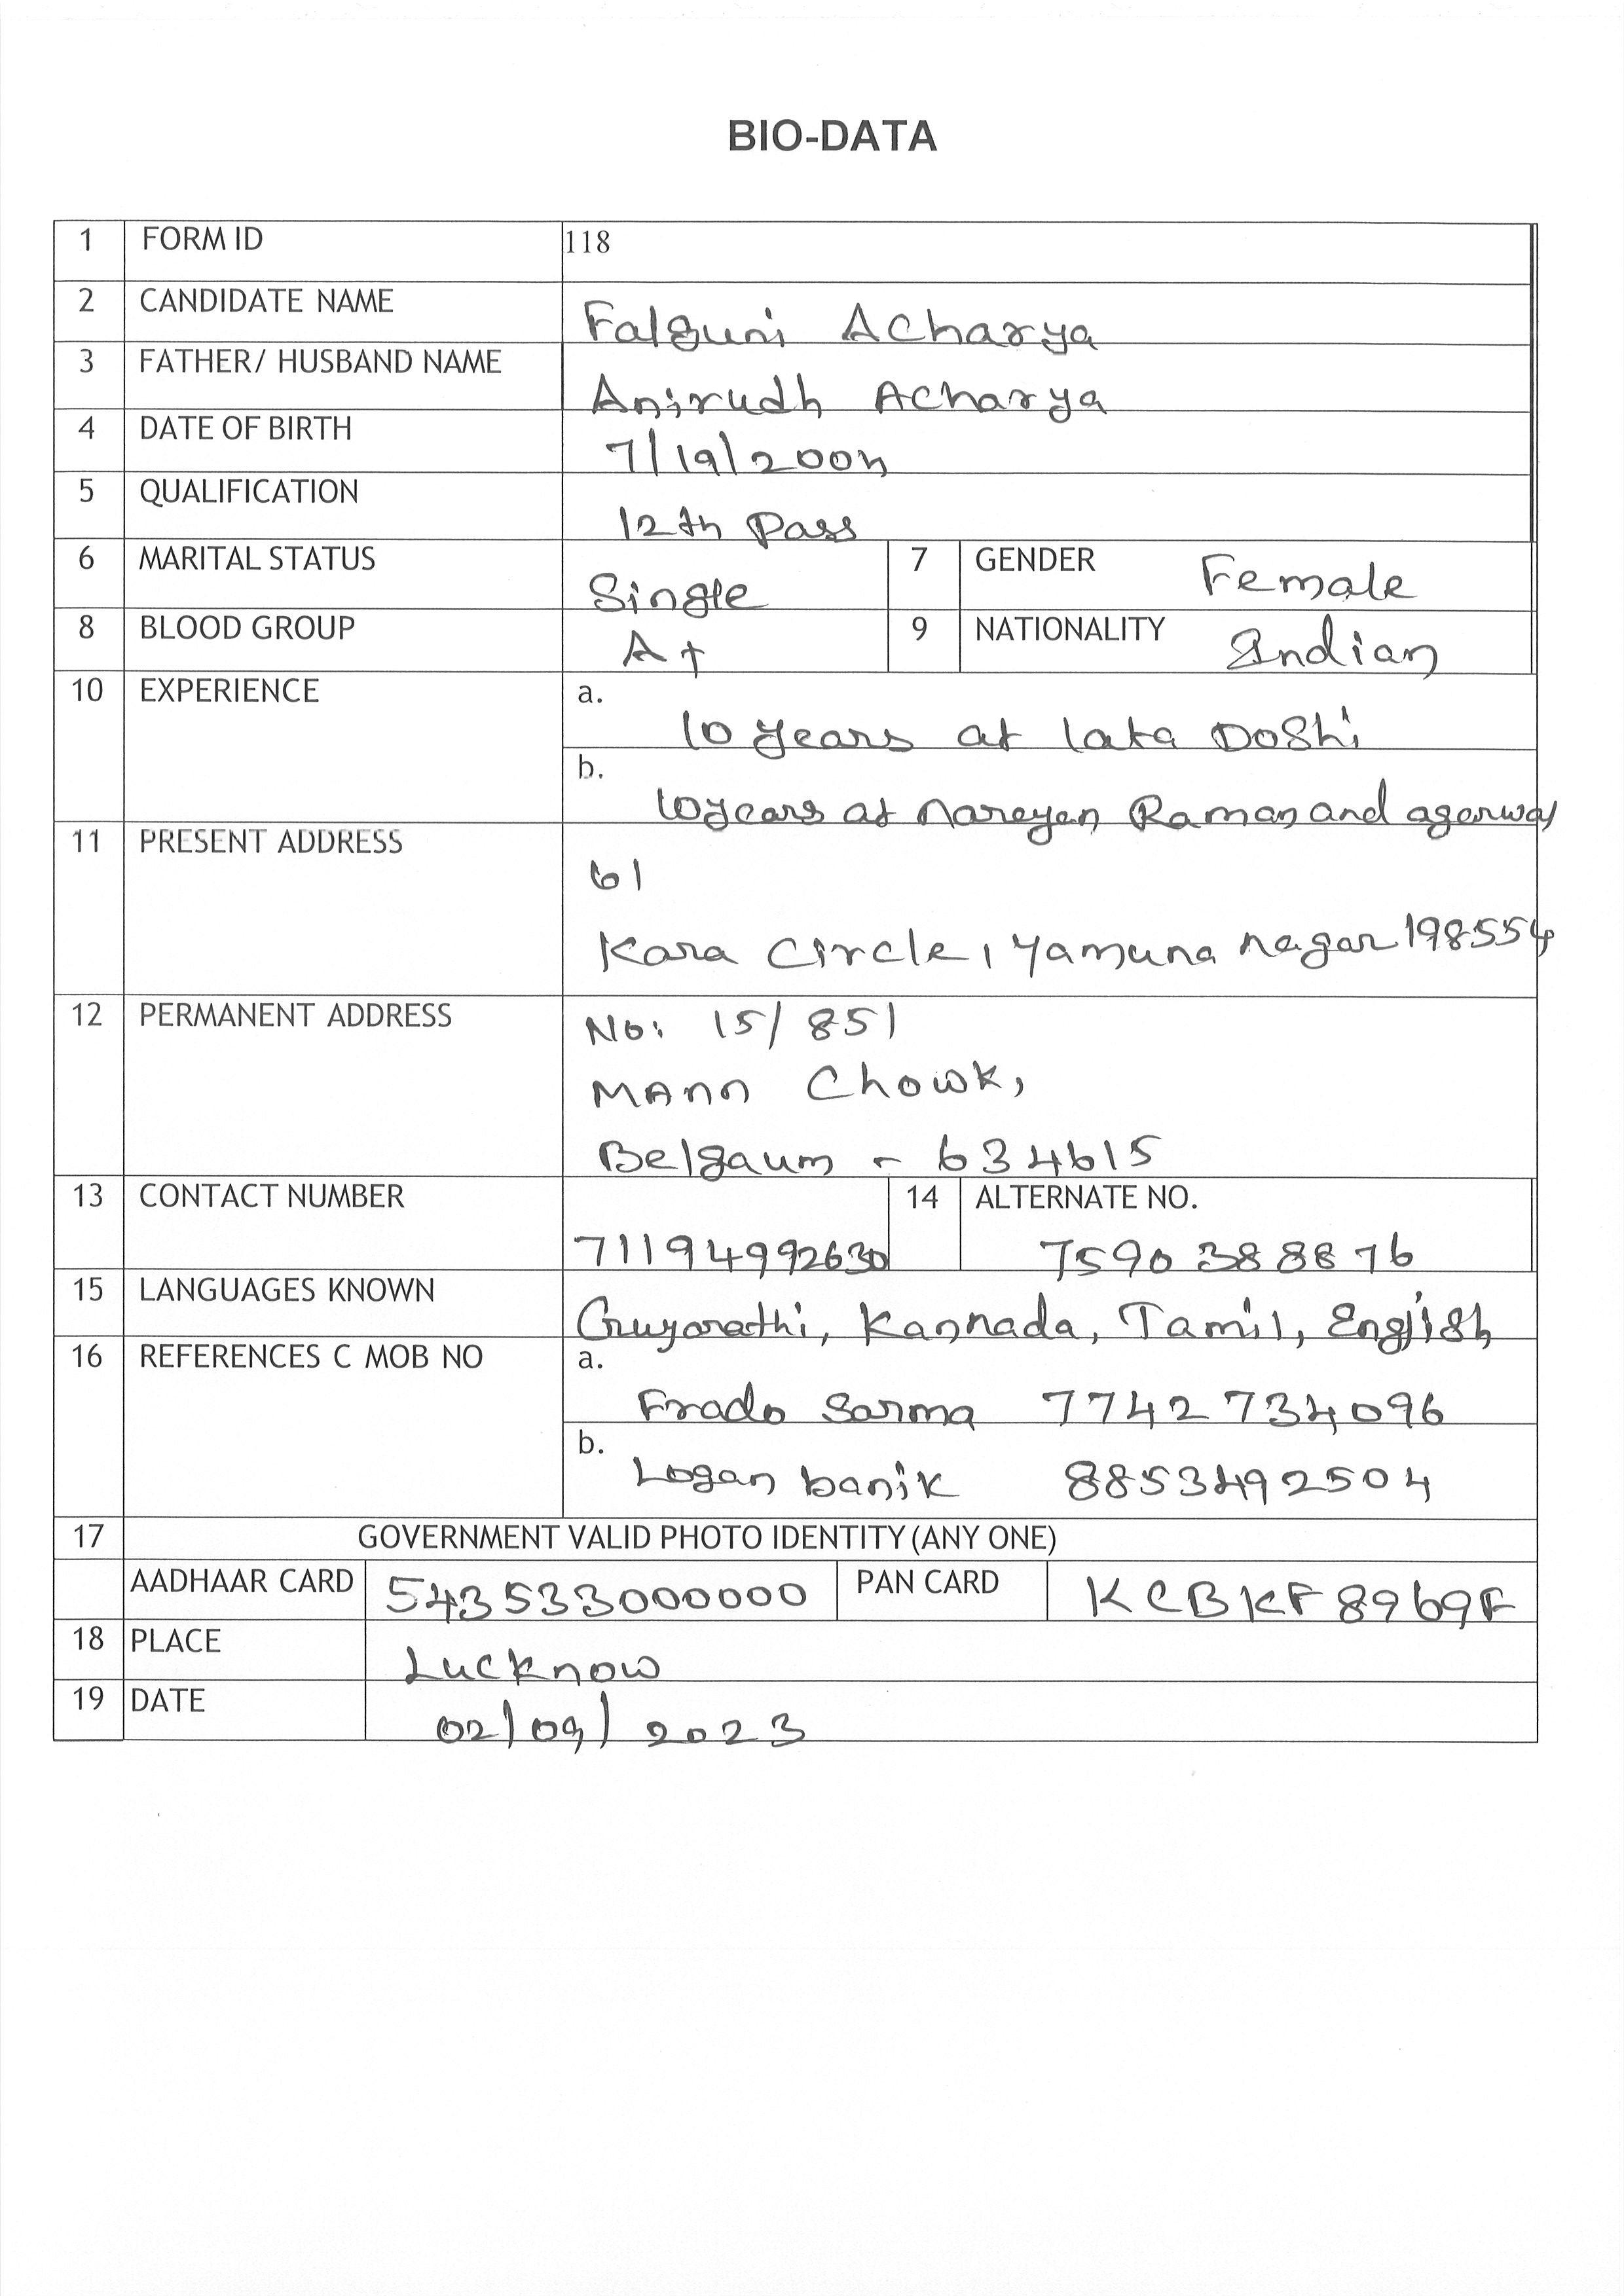 BIO-DATA
1 FORM ID 118
2 CANDIDATE NAME Falguni Acharya
3 FATHER/ HUSBAND NAME Anirudh Acharya
4 DATE OF BIRTH 7/19/2004
5 QUALIFICATION 12th Pass
6 MARITAL STATUS Single 7 GENDER Female
8 BLOOD GROUP A+ 9 NATIONALITY Indian
10 EXPERIENCE a. 10 years at lata Doshi
b. 10years at Narayan Raman and agarwal
11 PRESENT ADDRESS
61
Kara Circle, Yamuna nagar 198554
12 PERMANENT ADDRESS No: 15/851
Mann Chowk,
Belgaum - 634615
13 CONTACT NUMBER 71194992630 14 ALTERNATE NO. 7590388876
15 LANGUAGES KNOWN Gujarathi, Kannada, Tamil, English
16 REFERENCES C MOB NO a. Frado Sarma 7742734096
b. Logan banik 8853492504
17 GOVERNMENT VALID PHOTO IDENTITY (ANY ONE)
AADHAAR CARD 543533000000 PAN CARD KCBKF8969F
18 PLACE Lucknow
19 DATE 02/09/2023